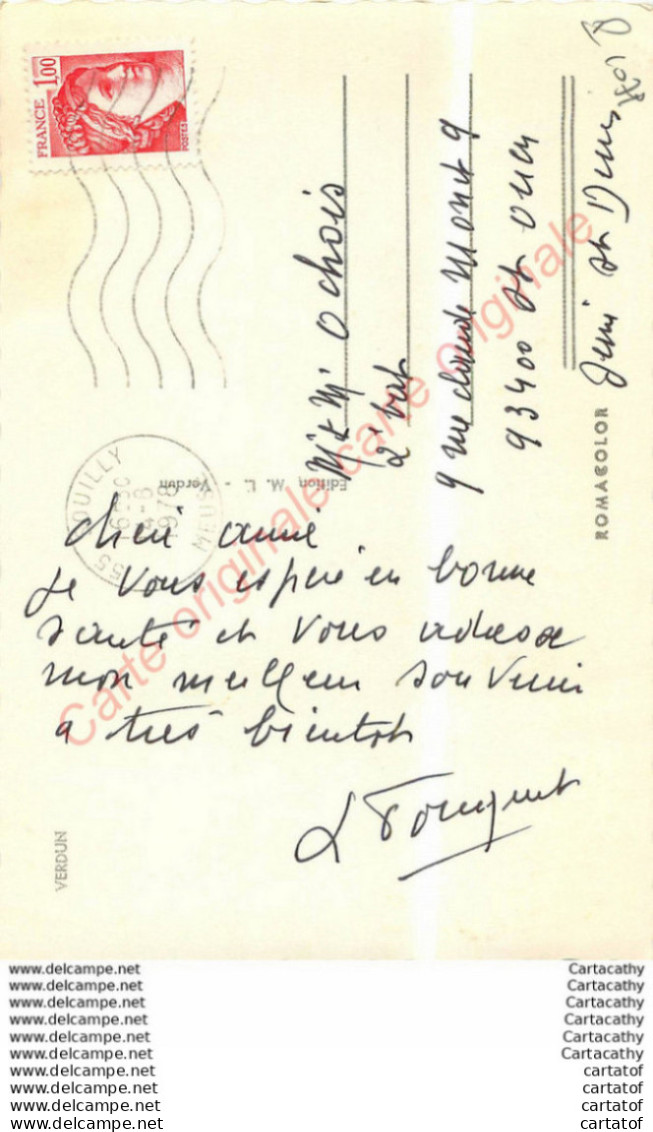 1,00
FRANCE
POSTES
55 OUILLY
16 30
4-8
1978
MEUSE
M & M Ochois
2 bat
9 rue claude Monet 9
93400 St Ouen
St Denis
ROMACOLOR
Edition M. L. - Verdun
VERDUN
Carte originale Carte originale
cheré amie
Je vous espere en bonne
santé et vous adresse
mon meilleur souvenir
a tres bientot
L Fouquet
www.delcampe.net Cartacathy
www.delcampe.net Cartacathy
www.delcampe.net Cartacathy
www.delcampe.net Cartacathy
www.delcampe.net Cartacathy
www.delcampe.net Cartacathy
www.delcampe.net cartatof
www.delcampe.net cartatof
www.delcampe.net cartatof
www.delcampe.net cartatof